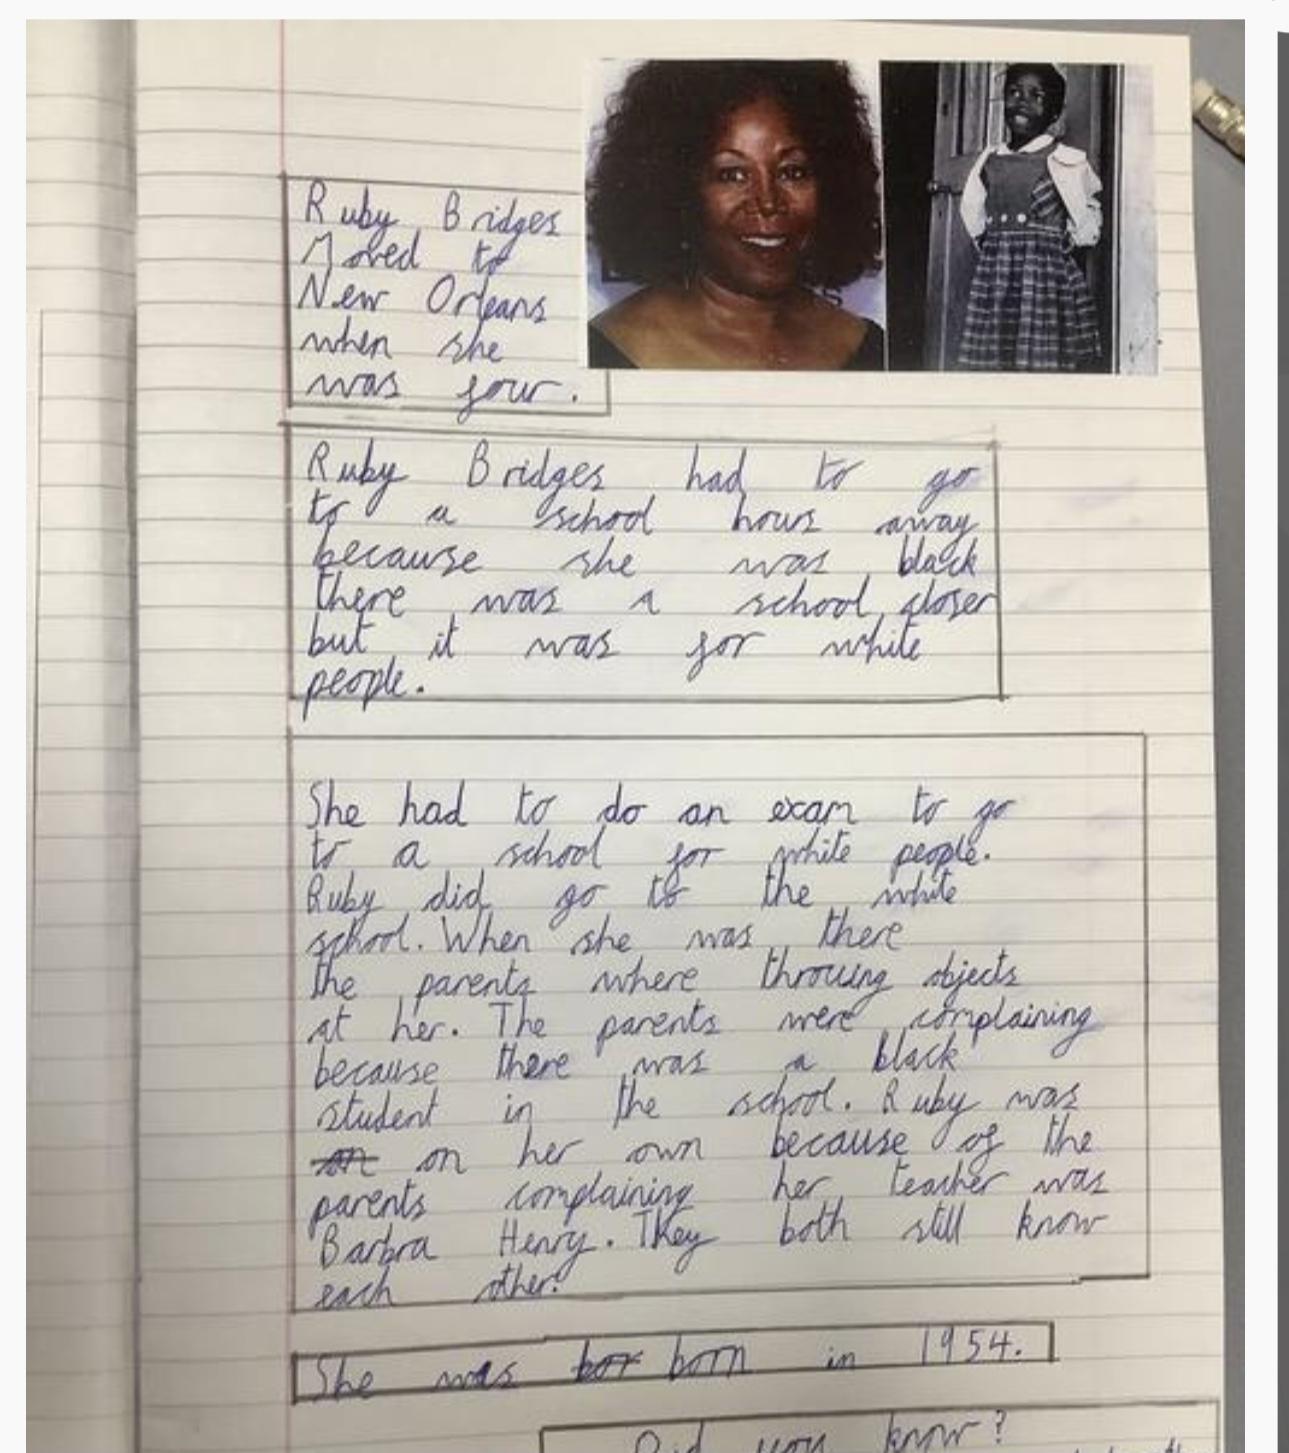 Ruby Bridges
Moved to
New Orleans
when she
was four.
Ruby Bridges had to go
to a school hours away
because she was black
there was a school closer
but it was for white
people.
She had to do an exam to go
to a school for white people.
Ruby did go to the white
school. When she was there
the parents where throwing objects
at her. The parents were complaining
because there was a black
student in the school. Ruby was
on on her own because of the
parents complaining her teacher was
Barbra Henry. They both still know
each other.
She was bor born in 1954.
Did you know?